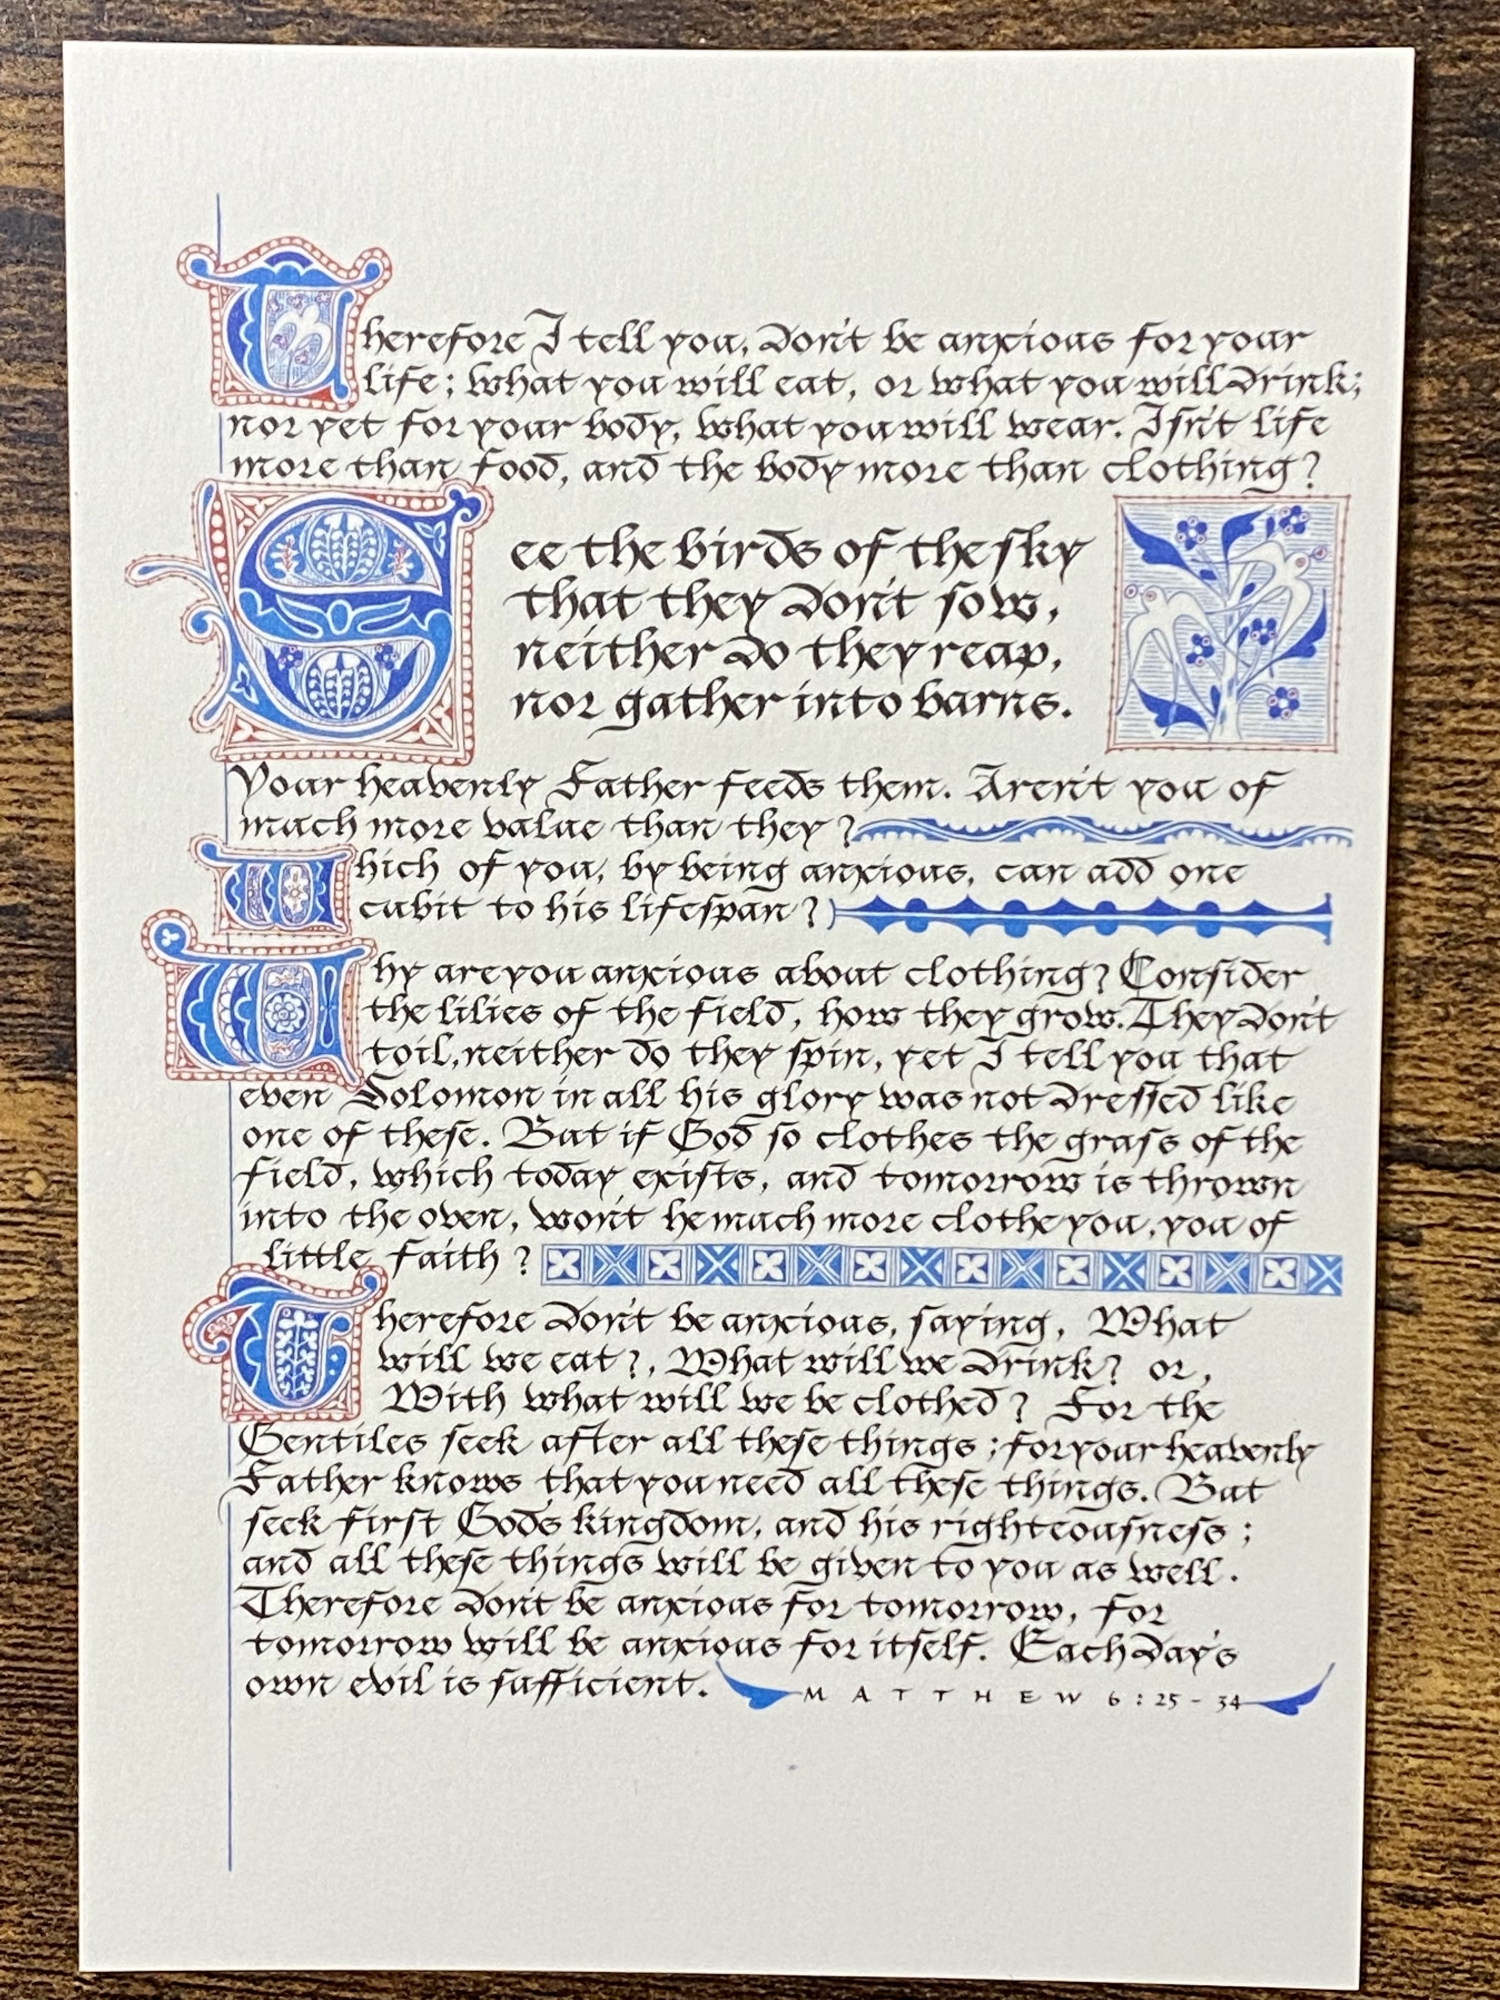 Therefore I tell you, don't be anxious for your
life; what you will eat, or what you will drink;
nor yet for your body, what you will wear. Isn't life
more than food, and the body more than clothing?
See the birds of the sky
that they don't sow,
neither do they reap,
nor gather into barns.
Your heavenly Father feeds them. Aren't you of
much more value than they?
Which of you, by being anxious, can add one
cubit to his lifespan?
Why are you anxious about clothing? Consider
the lilies of the field, how they grow. They don't
toil, neither do they spin, yet I tell you that
even Solomon in all his glory was not dressed like
one of these. But if God so clothes the grass of the
field, which today exists, and tomorrow is thrown
into the oven, won't he much more clothe you, you of
little faith?
Therefore don't be anxious, saying, What
will we eat?, What will we drink? or,
With what will we be clothed? For the
Gentiles seek after all these things; for your heavenly
Father knows that you need all these things. But
seek first God's kingdom, and his righteousness;
and all these things will be given to you as well.
Therefore don't be anxious for tomorrow, for
tomorrow will be anxious for itself. Each day's
own evil is sufficient. MATTHEW 6:25-34